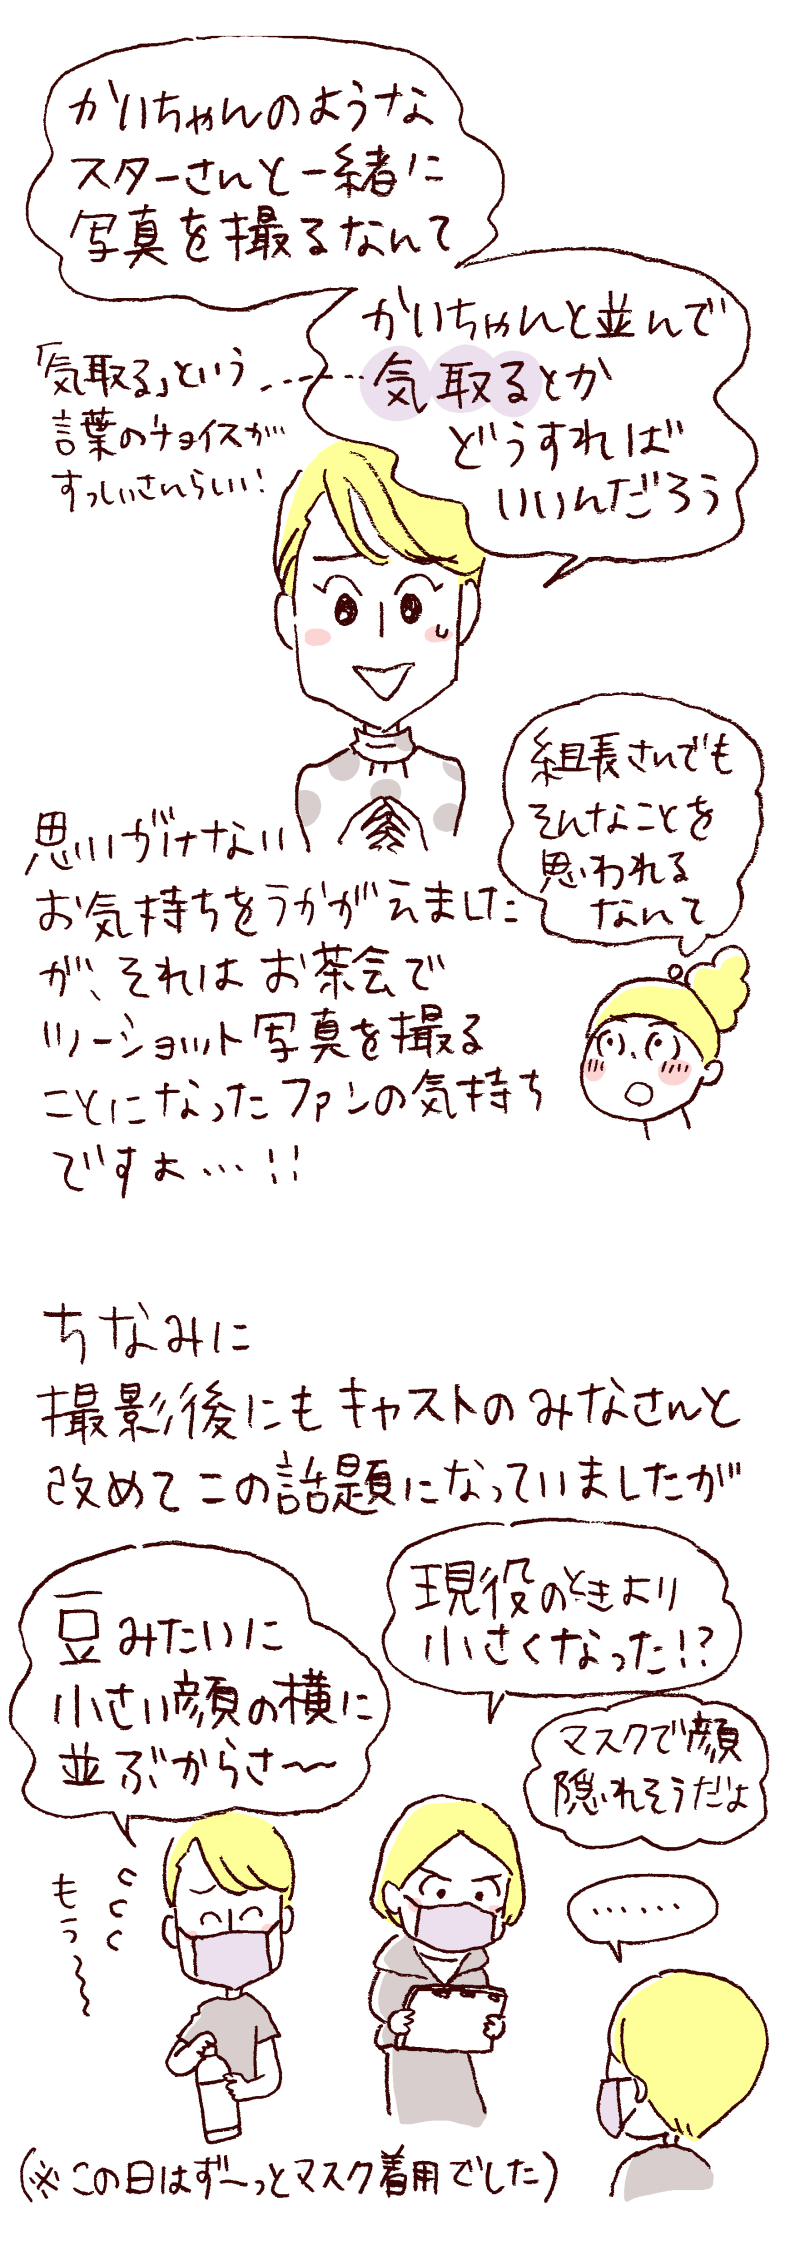 かいちゃんのような
スターさんと一緒に
写真を撮るなんて
かいちゃんと並んで
気取るとか
どうすれば
いいんだろう
「気取る」という
言葉のチョイスが
すっしぃさんらしい！
組長さんでも
そんなことを
思われる
なんて
思いがけない
お気持ちをうかがえました
が、それは お茶会で
ツーショット写真を撮る
ことになったファンの気持ち
ですよ…！！
ちなみに
撮影後にもキャストのみなさんと
改めてこの話題になっていましたが
豆みたいに
小さい顔の横に
並ぶからさ〜〜
現役のときより
小さくなった！？
マスクで顔
隠れそうだよ
……
もう〜〜
(※この日はず〜っとマスク着用でした)